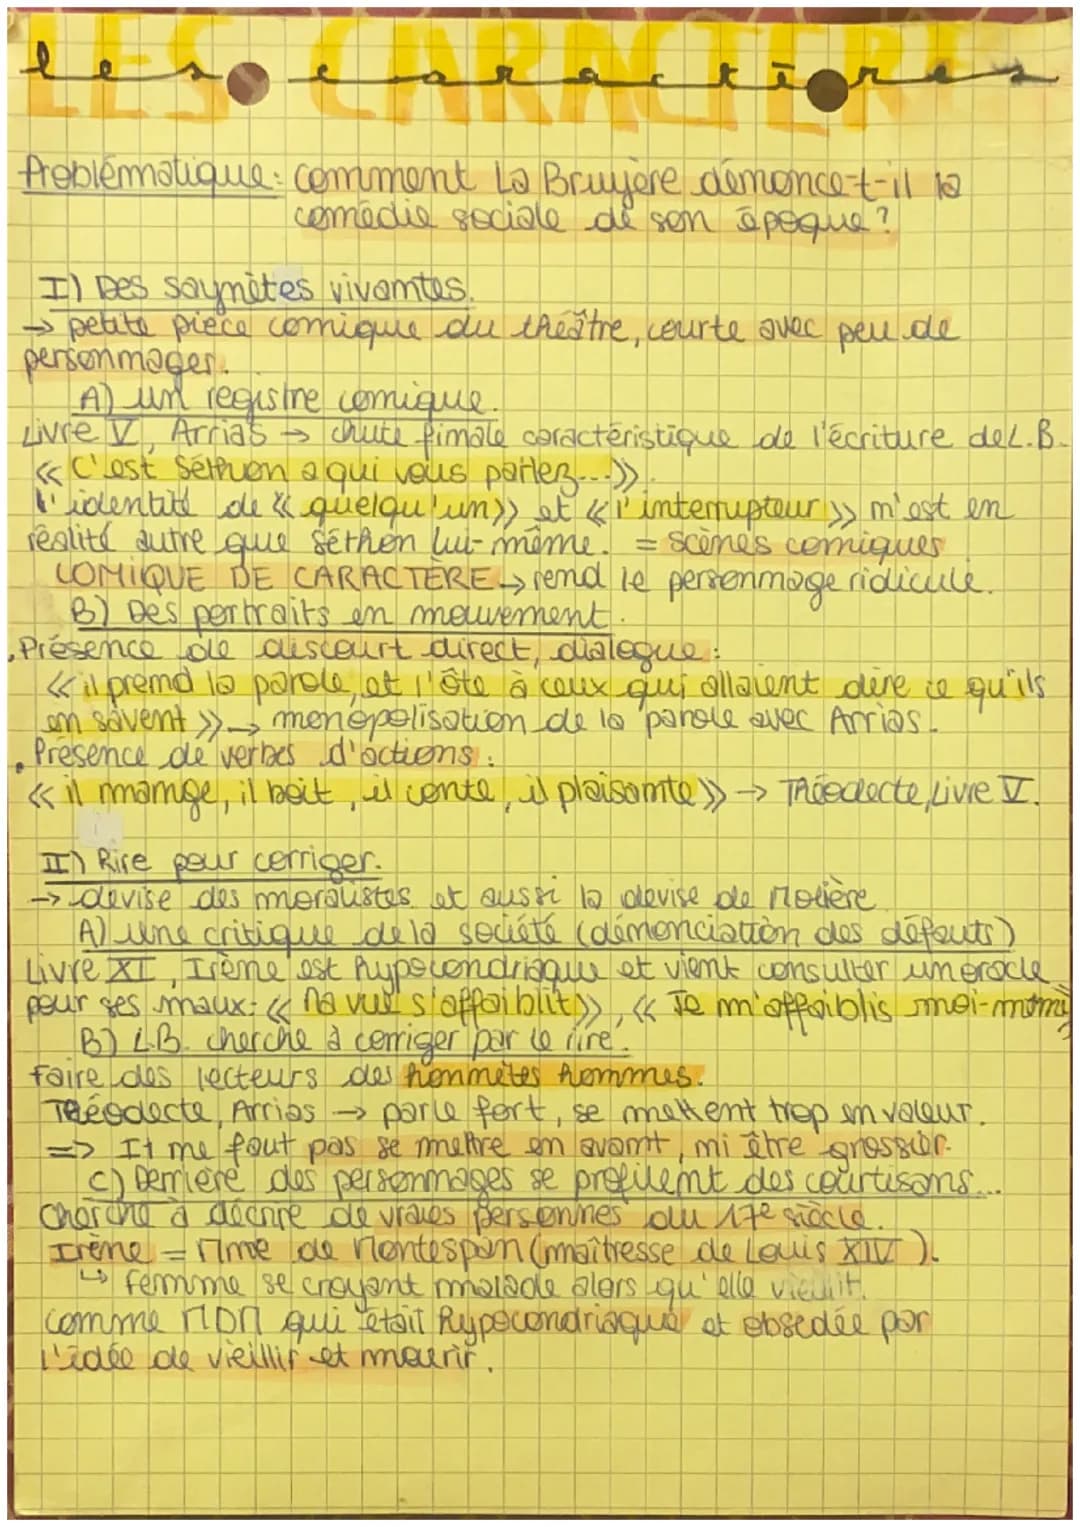 LES CARACTERE
les caractères
Problématique: comment La Bruyère dénonce-t-il la
comédie sociale de son époque?
I) Des saynètes vivantes.
→ petite pièce comique du théâtre, courte avec peu de
personnages.
A) un registre comique.
Livre V, Arrias → chute finale caractéristique de l'écriture de L.B.
« C'est Séthon a qui vous parlez...»
l'identité de « quelqu'un» et « l'interrupteur » n'est en
réalité autre que Séthon lui-même. = scènes comiques
COMIQUE DE CARACTÈRE → rend le personnage ridicule.
B) Des portraits en mouvement.
. Présence de discourt direct, dialogue:
« il prend la parole, et l'ôte à ceux qui allaient dire ce qu'ils
en savent » → monopolisation de la parole avec Arrias.
. Présence de verbes d'actions:
« il mange, il boit, il conte, il plaisante » → Théodecte, Livre V.
II) Rire pour corriger.
→ devise des moralistes et aussi la devise de Molière
A) une critique de la société (dénonciation des défauts)
Livre XI, Irène est hypocondriaque et vient consulter un oracle
pour ses maux: « Ma vue s'affaiblit », « Je m'affaiblis moi-même »
B) L.B. cherche à corriger par le rire.
Faire des lecteurs des honnêtes hommes.
Théodecte, Arrias → parle fort, se mettent trop en valeur.
=> Il ne faut pas se mettre en avant, ni être grossier.
C) Derrière des personnages se profilent des courtisans...
Cherche à décrire de vraies personnes du 17e siècle.
Irène = Mme de Montespan (maîtresse de Louis XIV).
↳ Femme se croyant malade alors qu'elle vieillit.
comme MDM qui était hypocondriaque et obsédée par
l'idée de vieillir et mourir.